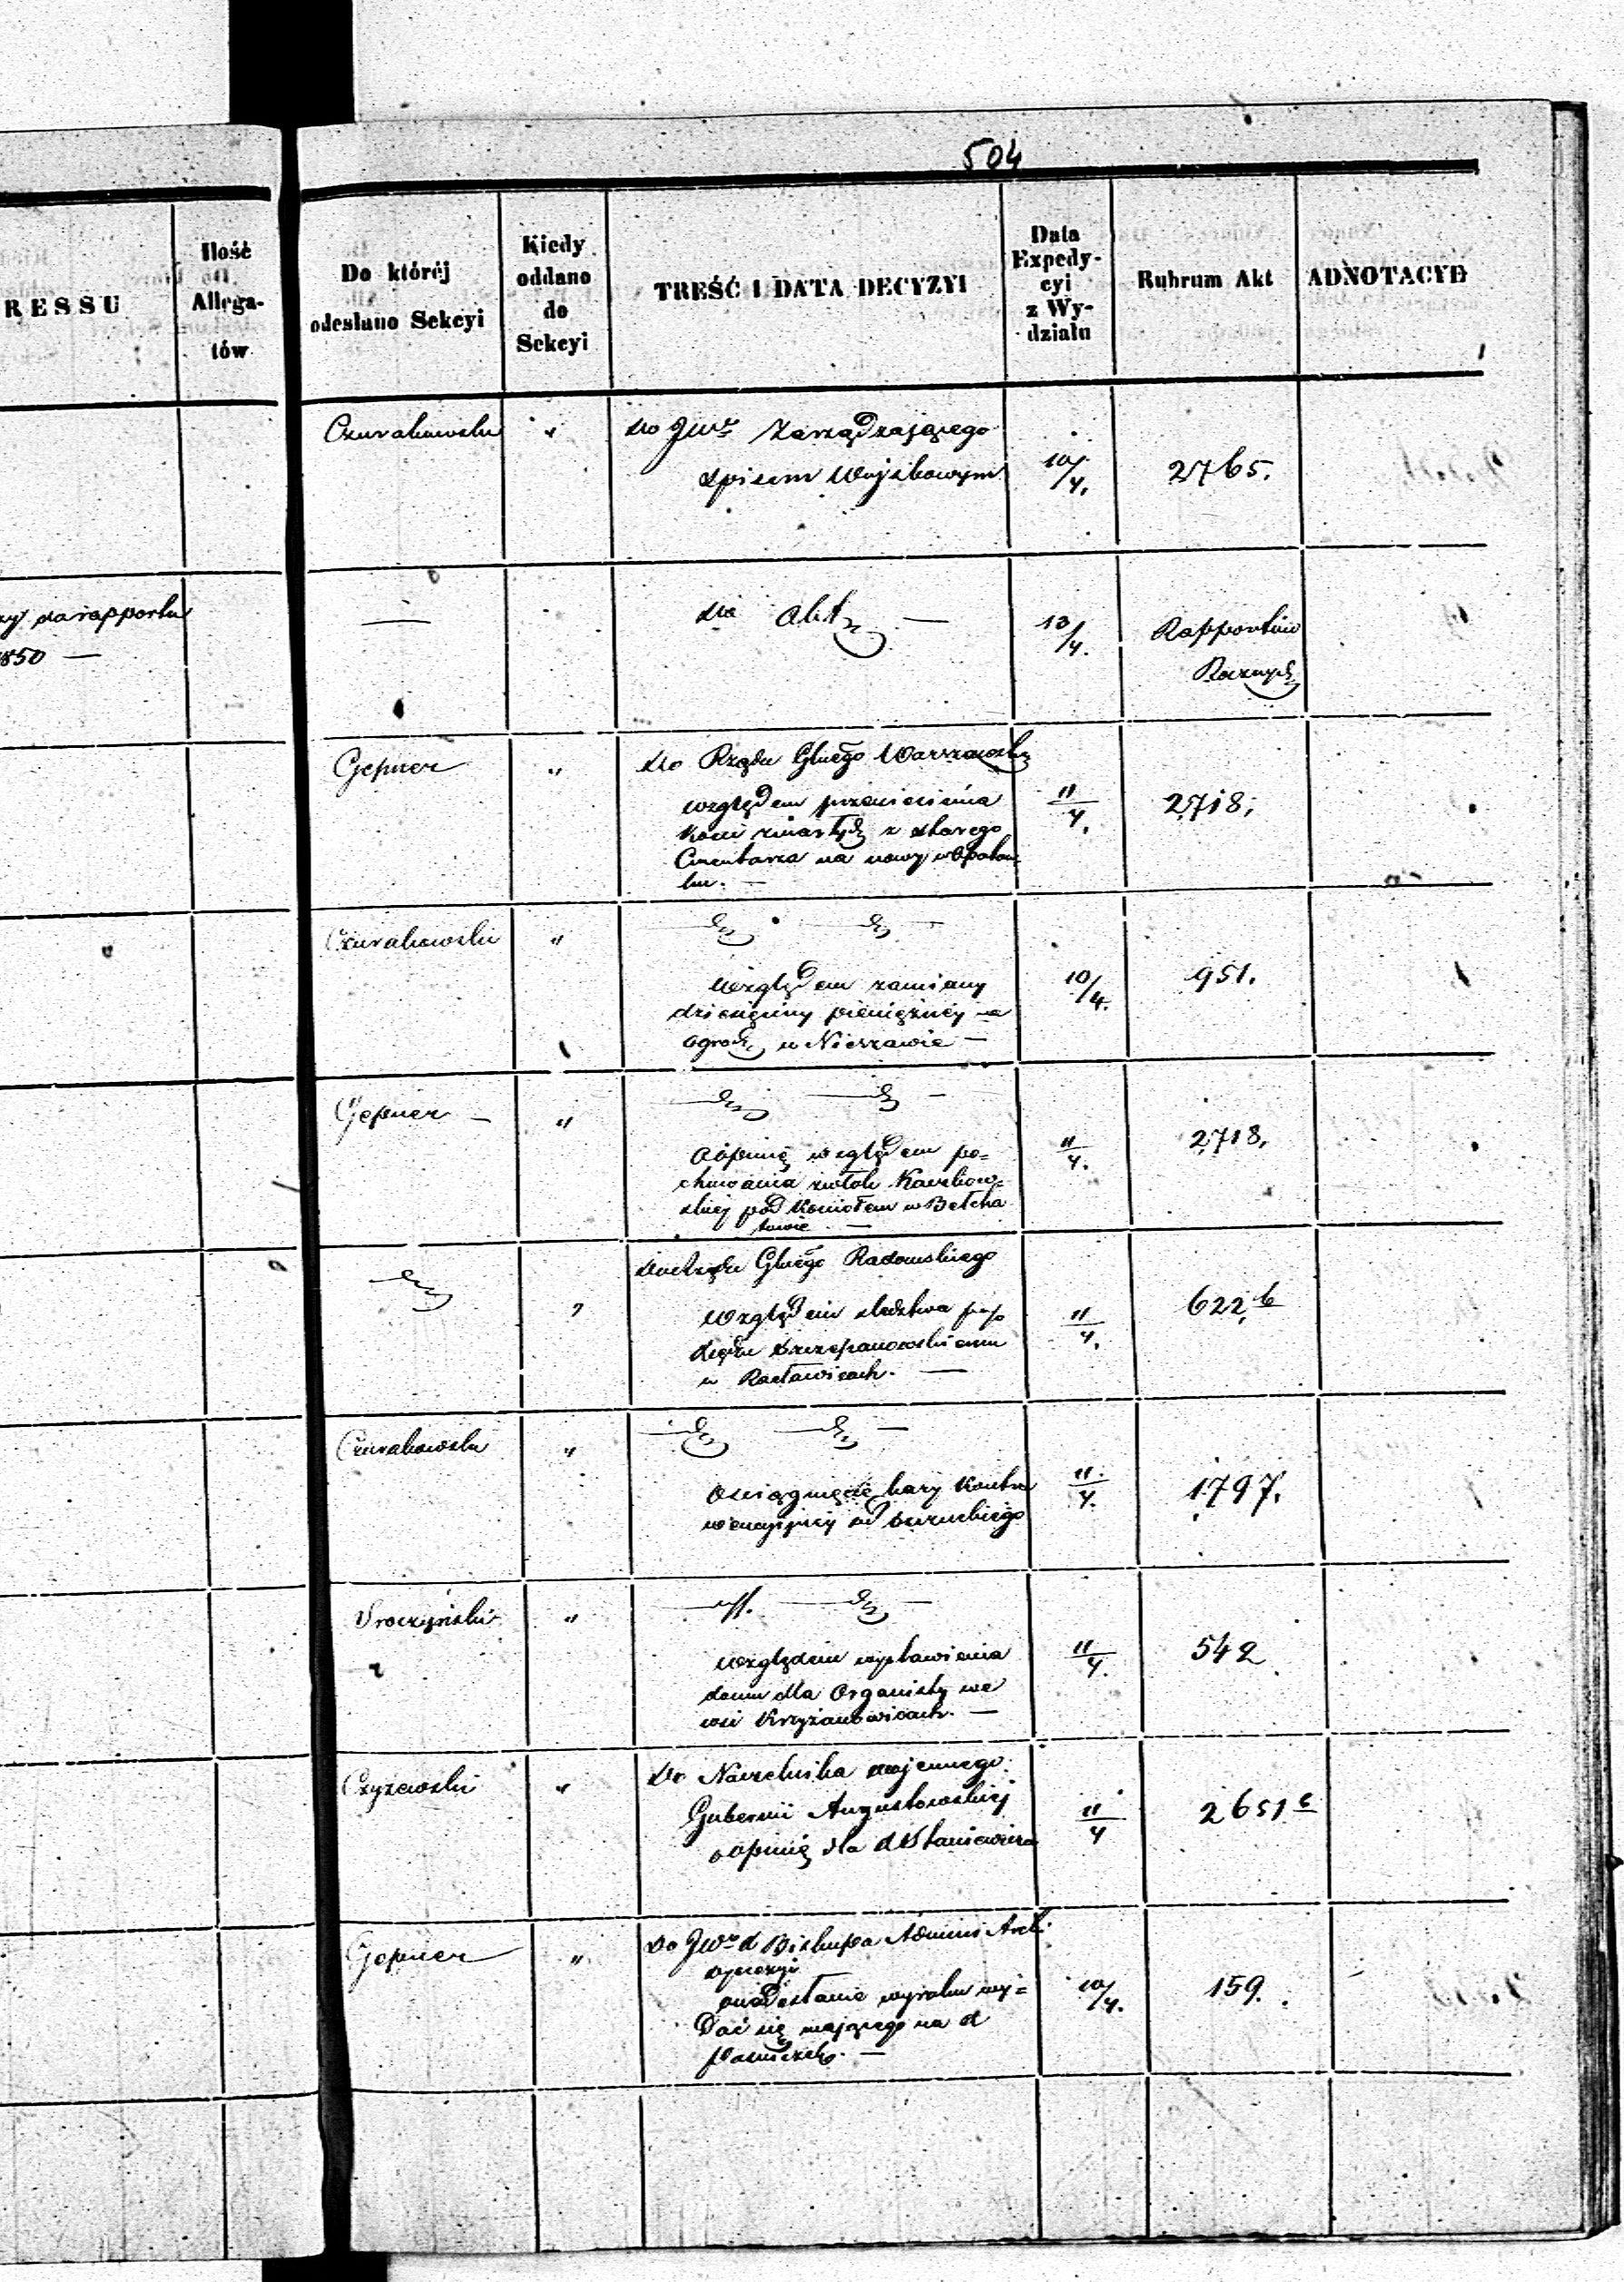 504
RESSU
Ilość
Allega-
tów
Do któréj
odesłano Sekcyi
Kiedy
oddano
do
Sekcyi
TREŚĆ I DATA DECYZYI
Data
Expedy-
cyi
z Wy-
działu
Rubrum Akt
ADNOTACYE
Czurakowski
"
do JW Zarządzającego
spisem Wojskowym
10/4.
2765.
rapportu
1850 —
—
do Akt —
10/4.
Rapportów
Rocznych
Gepner
"
do Rządu Glnego Warszawskgo
względem przeniesienia
kości zmarłych z starego
Cmentarza na nowy w Opatow
ku. —
11/4.
2718.
Czurakowski
"
względem zamiany
dziesięciny pieniężnej na
ogrod w Nieszawie —
10/4.
951.
Gepner —
"
o opinię względem po=
chowania zwłok Kaczkow=
skiej pod Kościołem w Bełcha
towie —
11/4.
2718.
"
do Rządu Glnego Radomskiego
względem śledztwa pp
Księdzu Szczepanowskiemu
w Racławicach. —
11/4.
622 b
Czurakowski
"
o ściągnięcie kary Kontra
wencyjnej od
11/4.
1797.
Wroczyński
"
względem wystawienia
domu dla Organisty we
wsi Krzyżanowicach. —
11/4.
542
Czyżewski
"
do Naczelnika wojennego
Gubernii Augustowskiej
o opinię dla X Staniewicza
11/4
2651 c
Gepner
"
do JW X Biskupa Adminis Archi
dyecezyi
o nadesłanie wyroku wy=
dać się mającego na X
10/4.
159.